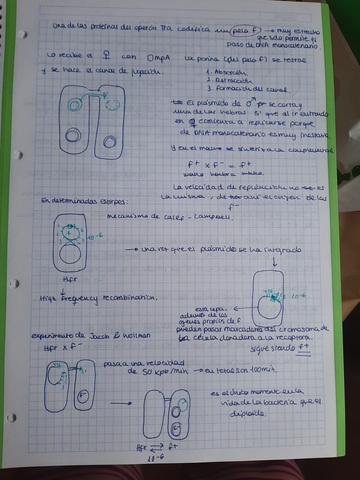 una de las proteínas del operón tra codifica un (pelo f) → muy estrecho
que solo permite el
paso de DNA monocatenario
Lo recibe el ♀ con OmpA un porina (dos pelo f) se retrae
y se hace el canal de
1. Absorción.
2. Retracción
3. Formación del canal.
→ El plásmido de ♂ se corta y
una de las hebras 5' que al ir entrando
en ♀ comienza a replicarse porque
de DNA monocatenario es muy
y en el macho se sintetiza la complementaria
f+ x f- = f+
macho hembra macho.
La velocidad de replicación no es
la misma, de aquí el origen de las
f-
En determinadas estirpes:
mecanismo de
10-6
→ una vez que el plásmido se ha integrado
Hfr
High Frequency recombination.
10-6
esta cepa
además de los
genes propios de f
pueden pasar marcadores del cromosoma de
la célula donadora a la receptora.
sigue siendo f+
experimento de Jacob & Wollman
Hfr x f-
pasa a una velocidad
de 50 kpb/min → en total son 100min.
es el único momento en la
vida de la bacteria que es
diploide.
Hfr ⇌ f+
10-6